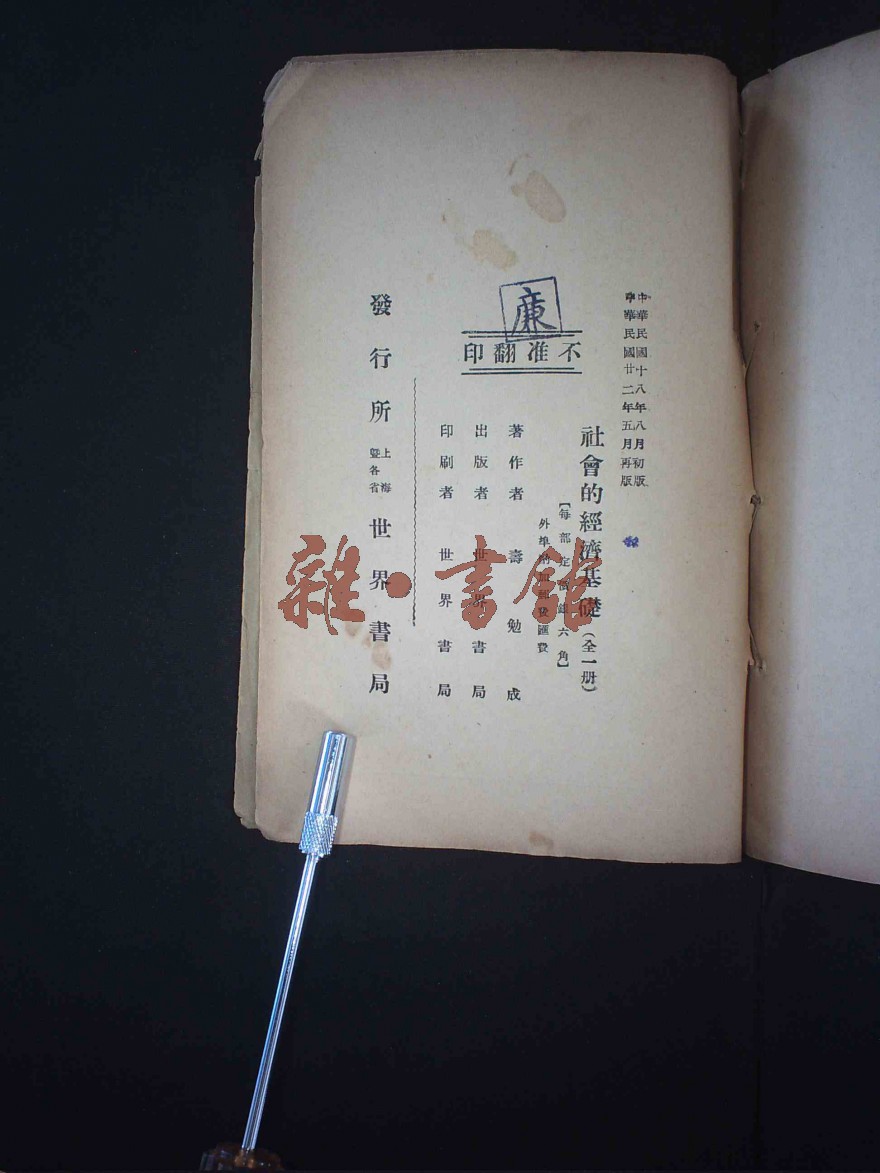 中華民國十八年八月初版
中華民國廿二年五月再版
社會的經濟基礎（全一册）
【每部定價銀六角】
外埠酌加郵費匯費
廉
不准翻印
著作者 壽勉成
出版者 世界書局
印刷者 世界書局
發行所 上海暨各省 世界書局
雜·書館